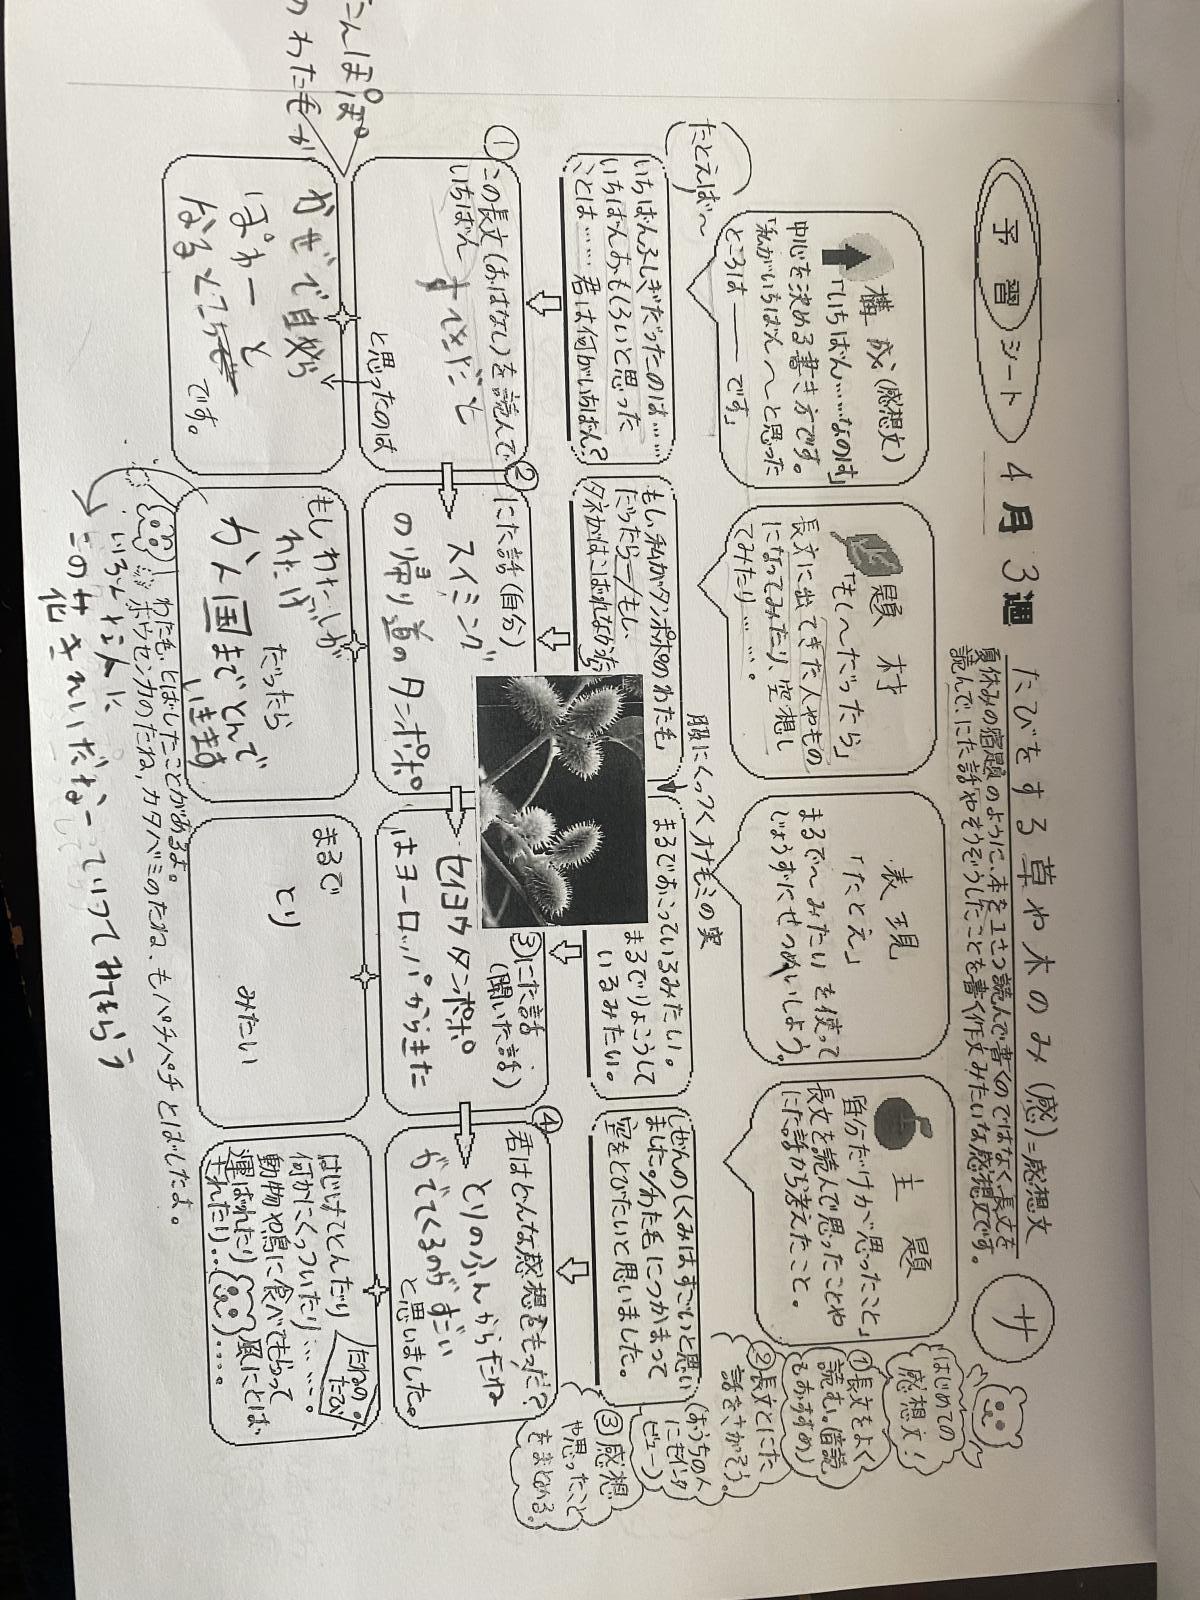 予習シート
4月3週
たびをする草や木のみ(感)=感想文
サ
夏休みの宿題のように、本を1さつ読んで書くのではなく、長文を
読んで、にた話やそうぞうしたことを書く作文みたいな感想文です。
はじめての
感想文!
①長文をよく
読む。(音読
もおすすめ)
②長文とにた
話をさがそう。
(おうちの人
にもインタ
ビュー)
③感想
や思ったこと
をまとめる。
構成(感想文)
「いちばん……なのは」
中心を決める書き方です。
「私がいちばん〜と思った
ところは――です」
題材
「もし〜だったら」
長文に出てきた人やもの
になってみたり、空想し
てみたり……。
表現
「たとえ」
まるで〜みたい を使って
じょうずにせつめいしよう。
主題
「自分だけが思ったこと」
長文を読んで思ったことや
にた話から考えたこと。
たとえば〜
服にくっつくオナモミの実
いちばんふしぎだったのは……
いちばんおもしろいと思った
ことは……君は何がいちばん?
もし私がタンポポのわた毛
だったら―/もし
タネがはこばれなかったら
まるでおこっているみたい。
まるでりょこうして
いるみたい。
しぜんのしくみはすごいと思い
ました。/わた毛につかまって
空をとびたいと思いました。
①
この長文(おはなし)を読んで
いちばん
すてきだと
と思ったのは
②
にた話(自分)
スイミング
の帰り道のタンポポ
③にた話
(聞いた話)
セイヨウタンポポ
はヨーロッパからきた
④
君はどんな感想をもった?
とりのふんからたね
がでてくるのがすごい
と思いました。
たんぽぽ
のわた毛が
かぜで自然
ぽわーと
なるところ
です。
もしわたしが
わたげ
だったら
かん国までとんで
いきます
まるで
とり
みたい
たねの
たび
はじけてとんだり
何かにくっついたり……。
動物や鳥に食べてもらって
運ばれたり
風にとば
されたり……。
わた毛、とばしたことがあるよ。
ホウセンカのたね、カタバミのたね、もパチパチとばしたよ。
いろんな人に
この花きれいだなーっていってもらう